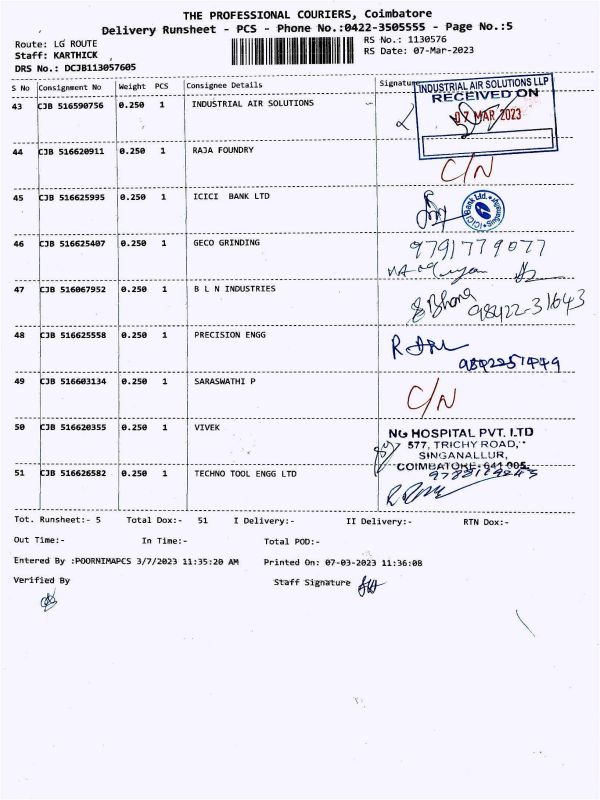 THE PROFESSIONAL COURIERS, Coimbatore
Delivery Runsheet - PCS - Phone No.:0422-3505555 - Page No.:5
Route: LG ROUTE
RS No.: 1130576
Staff: KARTHICK
RS Date: 07-Mar-2023
DRS No.: DCJB113057605
S No Consignment No Weight PCS Consignee Details Signature
INDUSTRIAL AIR SOLUTIONS LLP
RECEIVED ON
07 MAR 2023
43 CJB 516590756 0.250 1 INDUSTRIAL AIR SOLUTIONS
44 CJB 516620911 0.250 1 RAJA FOUNDRY C/N
45 CJB 516625995 0.250 1 ICICI BANK LTD
ICICI Bank Ltd. Singanallur
46 CJB 516625407 0.250 1 GECO GRINDING 9791779077
47 CJB 516067952 0.250 1 B L N INDUSTRIES
98422-31643
48 CJB 516625558 0.250 1 PRECISION ENGG
49 CJB 516603134 0.250 1 SARASWATHI P C/N
50 CJB 516620355 0.250 1 VIVEK
NG HOSPITAL PVT. LTD
577, TRICHY ROAD,
SINGANALLUR,
COIMBATORE-641 005.
51 CJB 516626582 0.250 1 TECHNO TOOL ENGG LTD
Tot. Runsheet:- 5 Total Dox:- 51 I Delivery:- II Delivery:- RTN Dox:-
Out Time:- In Time:- Total POD:-
Entered By :POORNIMAPCS 3/7/2023 11:35:20 AM Printed On: 07-03-2023 11:36:08
Verified By Staff Signature